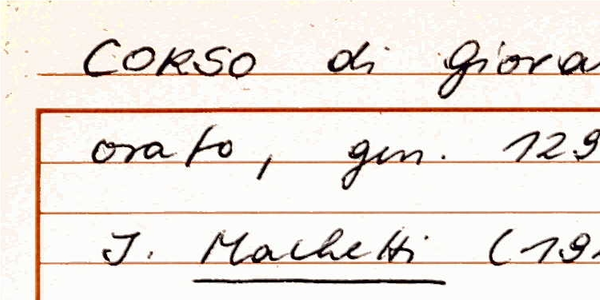 CORSO di Giova
orafo, gen. 129
I. Machetti (192